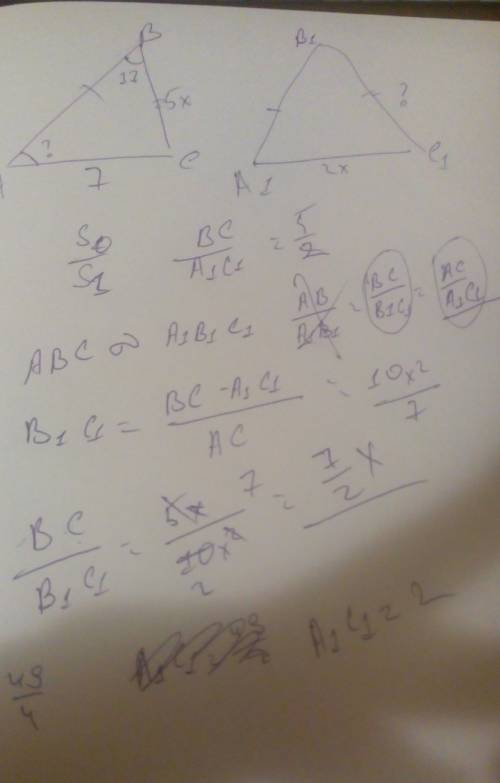 B
B1
11
5x
?
?
A
7
C
A1
2x
C1
S0/S1
BC/A1C1 = 5/2
ABC ∾ A1B1C1
AB/A1B1 = BC/B1C1 = AC/A1C1
B1C1 = BC - A1C1 / AC = 10x2 / 7
BC/B1C1 = 5x 7 / 10x2 2 = 7/2 x
49/4
A1C1 = 2